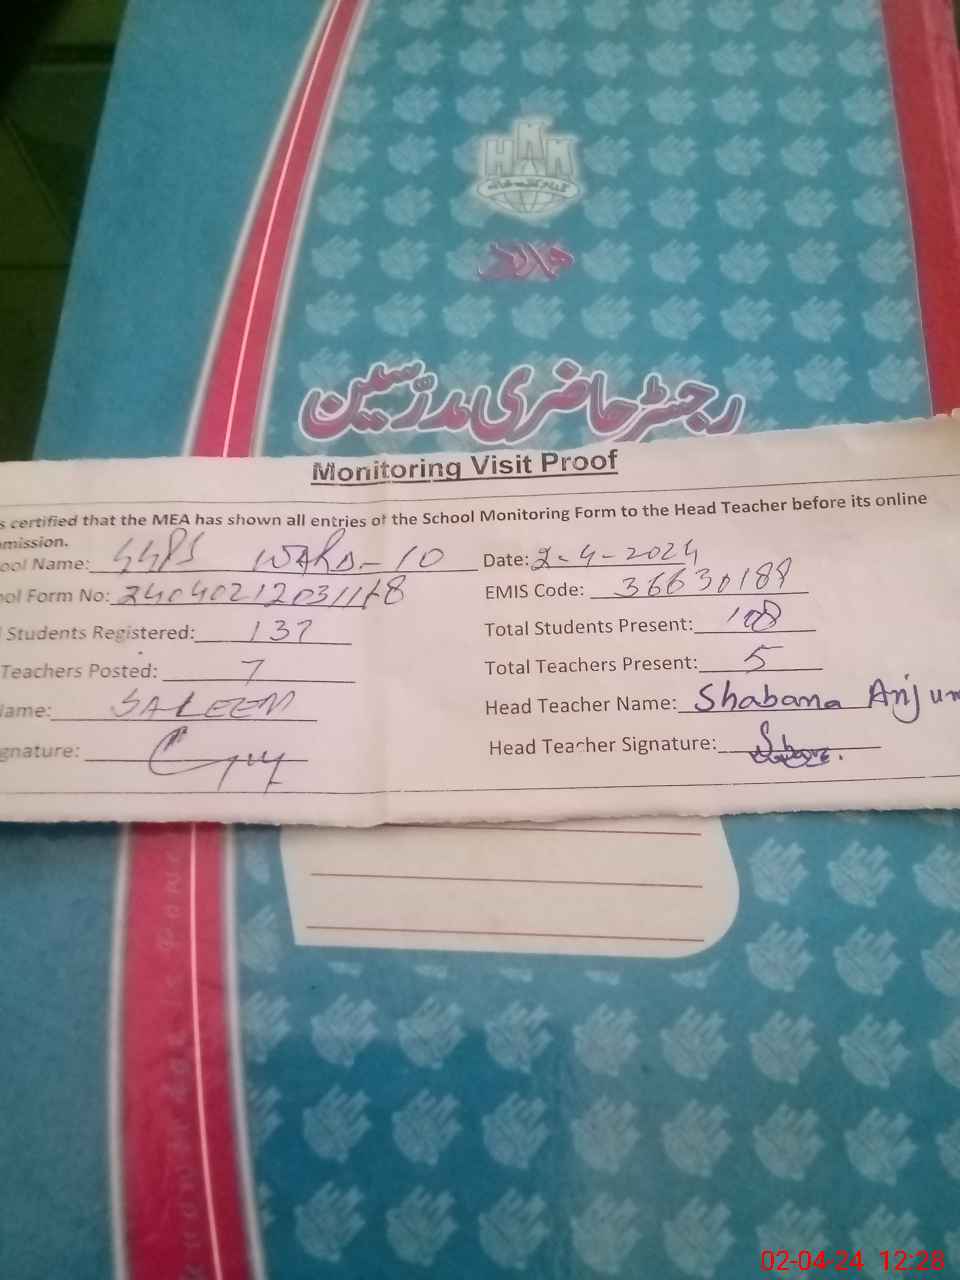 HKK
رجسٹر حاضری مدرّسین
Monitoring Visit Proof
s certified that the MEA has shown all entries of the School Monitoring Form to the Head Teacher before its online
mission.
ool Name: GGPS WARD-10 Date: 2-4-2024
ool Form No: EMIS Code: 36630189
Students Registered: 137 Total Students Present: 108
Teachers Posted: 7 Total Teachers Present: 5
ame: SALEEM Head Teacher Name: Shabana Anjum
gnature: Head Teacher Signature:
02-04-24 12:28